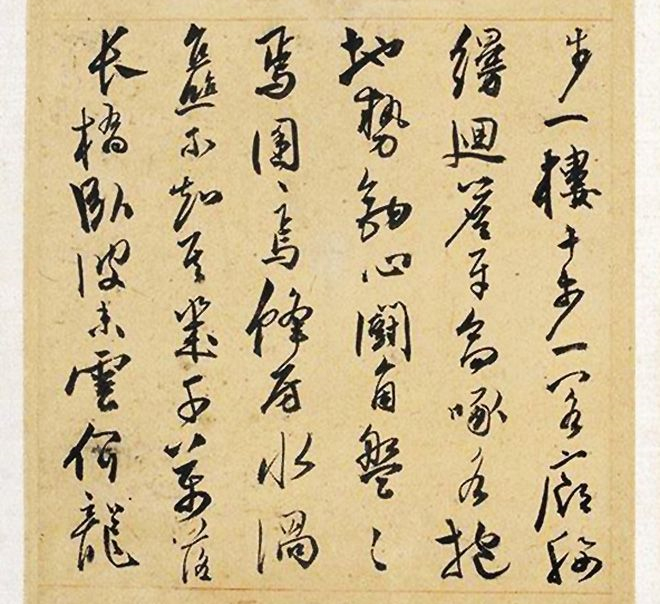 步一樓十步一閣廊腰
縵迴簷牙高啄各抱
地勢鉤心鬭角盤〻
焉囷〻焉蜂房水渦
矗不知其幾千萬落
長橋臥波未雲何龍